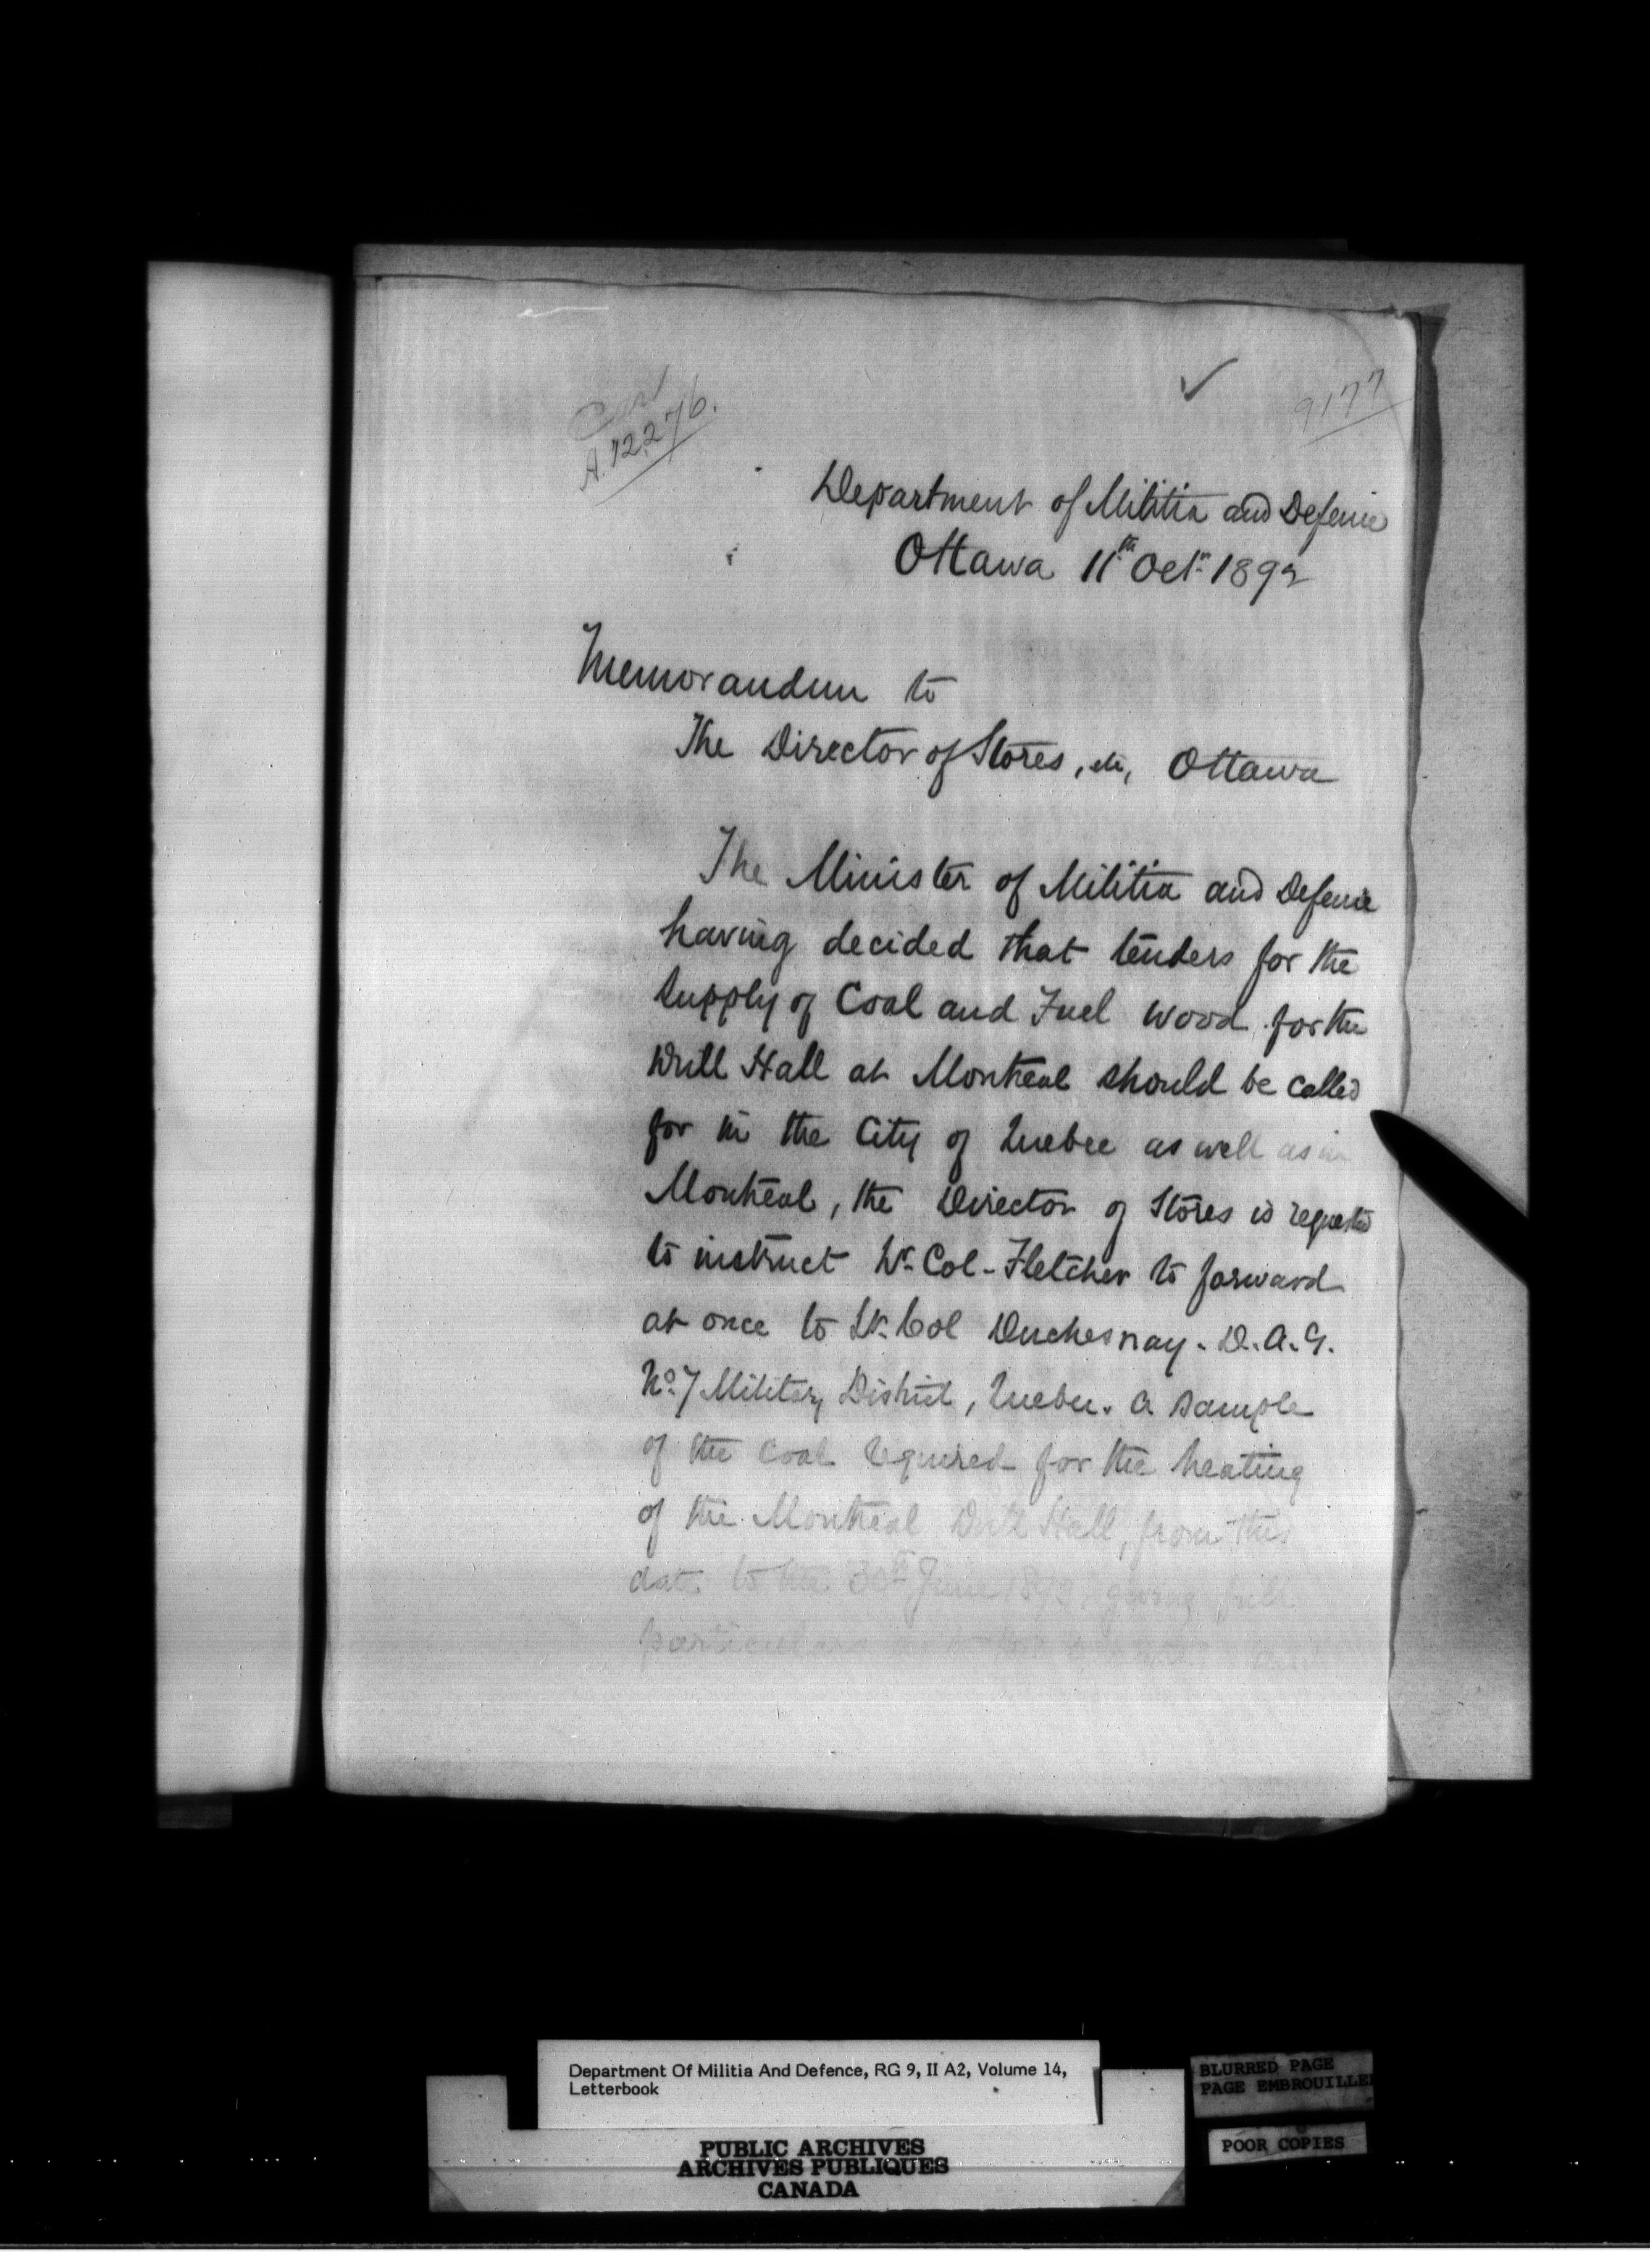 A.12276.
9177
Department of Militia and Defence
Ottawa 11th Octr. 1892
Memorandum to
The Director of Stores, etc, Ottawa
The Minister of Militia and Defence
having decided that tenders for the
supply of Coal and Fuel wood for the
Drill Hall at Montreal should be called
for in the City of Quebec as well as in
Montreal, the Director of Stores is requested
to instruct Lt. Col. Fletcher to forward
at once to Lt. Col Duchesnay. D.A.G.
No. 7 Military District, Quebec. a sample
of the coal required for the heating
of the Montreal Drill Hall, from this
date to the 30th June 1893, giving full
particulars as to the
Department Of Militia And Defence, RG 9, II A2, Volume 14,
Letterbook
BLURRED PAGE
PAGE EMBROUILLEE
POOR COPIES
PUBLIC ARCHIVES
ARCHIVES PUBLIQUES
CANADA